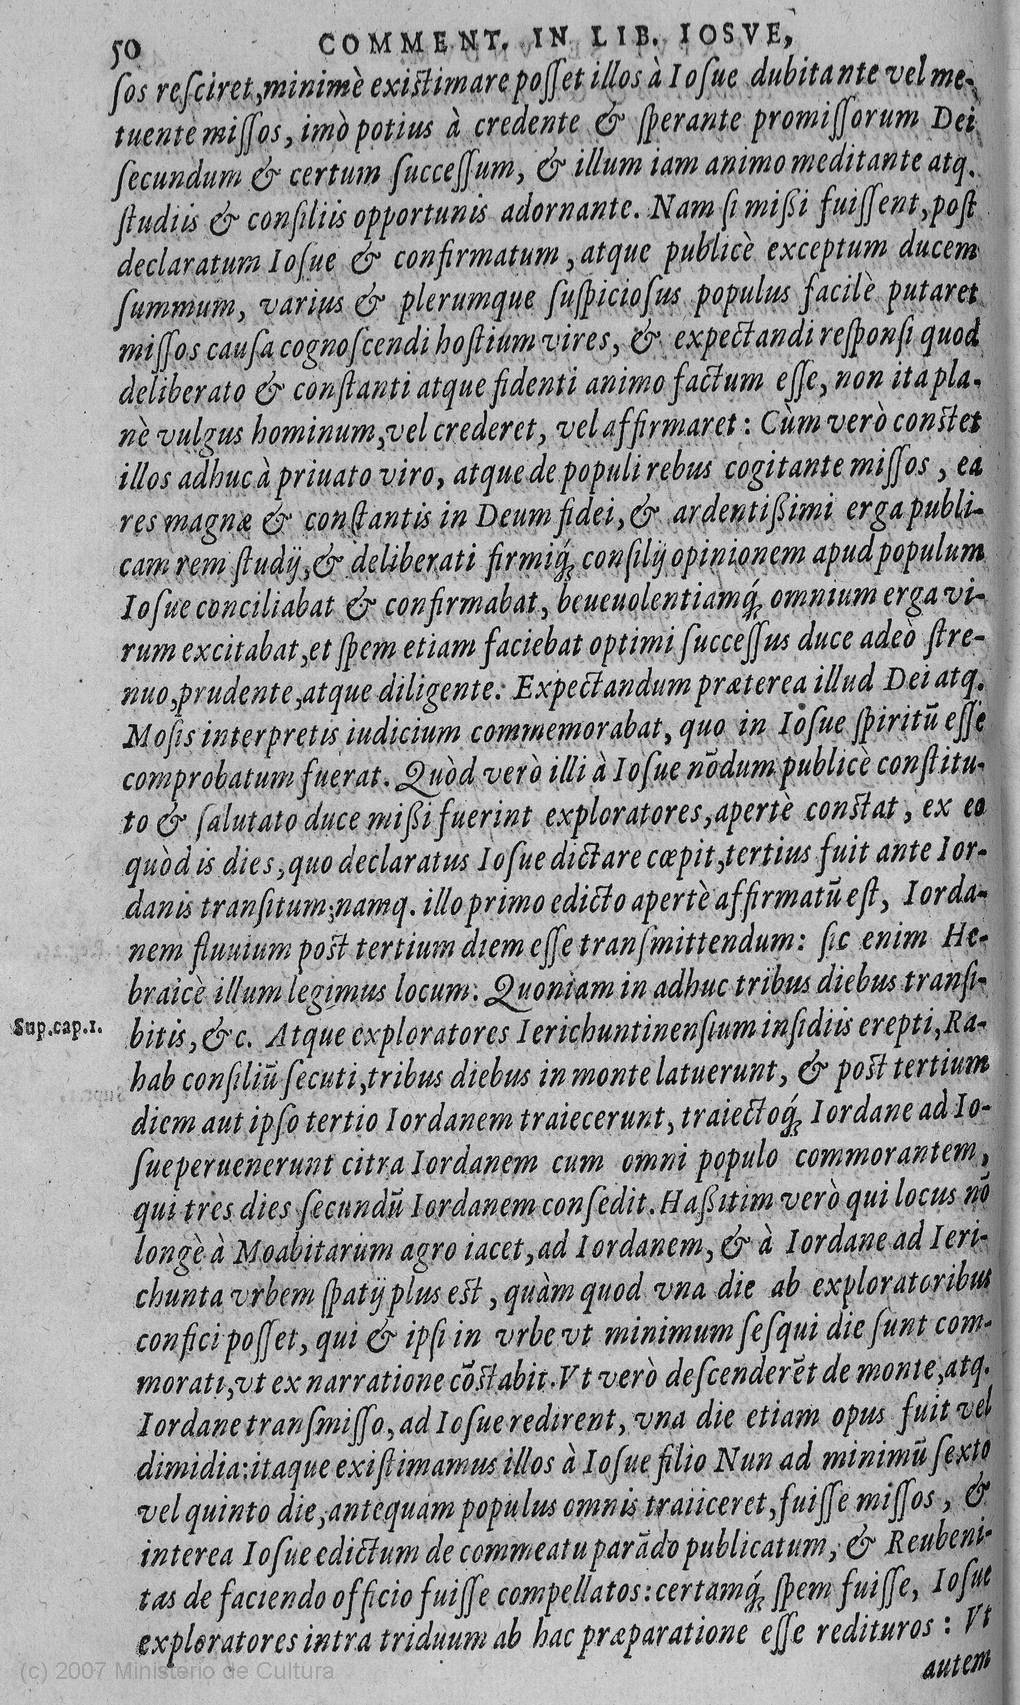 50 COMMENT. IN LIB. IOSVE,
sos resciret, minimè existimare posset illos à Iosue dubitante vel me-
tuente missos, imò potius à credente & sperante promissorum Dei
secundum & certum successum, & illum iam animo meditante atq.
studiis & consiliis opportunis adornante. Nam si mißi fuissent, post
declaratum Iosue & confirmatum, atque publicè exceptum ducem
summum, varius & plerumque suspiciosus populus facilè putaret
missos causa cognoscendi hostium vires, & expectandi responsi quod
deliberato & constanti atque fidenti animo factum esse, non ita pla-
nè vulgus hominum, vel crederet, vel affirmaret: Cùm verò constet
illos adhuc à priuato viro, atque de populi rebus cogitante missos, ea
res magnæ & constantis in Deum fidei, & ardentißimi erga publi-
cam rem studij, & deliberati firmiq́; consilij opinionem apud populum
Iosue conciliabat & confirmabat, beueuolentiamq́; omnium erga vi-
rum excitabat, et spem etiam faciebat optimi successus duce adeò stre-
nuo, prudente, atque diligente. Expectandum præterea illud Dei atq.
Mosis interpretis iudicium commemorabat, quo in Iosue spiritū esse
comprobatum fuerat. Quòd verò illi à Iosue nōdum publicè constitu-
to & salutato duce mißi fuerint exploratores, apertè constat, ex eo
quòd is dies, quo declaratus Iosue dictare cœpit, tertius fuit ante Ior-
danis transitum; namq. illo primo edicto apertè affirmatū est, Iorda-
nem fluuium post tertium diem esse transmittendum: sic enim He-
braicè illum legimus locum: Quoniam in adhuc tribus diebus transi-
Sup.cap.1.
bitis, &c. Atque exploratores Ierichuntinensium insidiis erepti, Ra-
hab consiliū secuti, tribus diebus in monte latuerunt, & post tertium
diem aut ipso tertio Iordanem traiecerunt, traiectoq́; Iordane ad Io-
sue peruenerunt citra Iordanem cum omni populo commorantem,
qui tres dies secundū Iordanem consedit. Haßitim verò qui locus nō
longè à Moabitarum agro iacet, ad Iordanem, & à Iordane ad Ieri-
chunta vrbem spatij plus est, quàm quod vna die ab exploratoribus
confici posset, qui & ipsi in vrbe vt minimum sesqui die sunt com-
morati, vt ex narratione cōstabit. Vt verò descenderēt de monte, atq.
Iordane transmisso, ad Iosue redirent, vna die etiam opus fuit vel
dimidia: itaque existimamus illos à Iosue filio Nun ad minimū sexto
vel quinto die, antequam populus omnis traiiceret, fuisse missos, &
interea Iosue edictum de commeatu parādo publicatum, & Reubeni-
tas de faciendo officio fuisse compellatos: certamq́; spem fuisse, Iosue
exploratores intra triduum ab hac præparatione esse redituros: Vt
autem
(c) 2007 Ministerio de Cultura